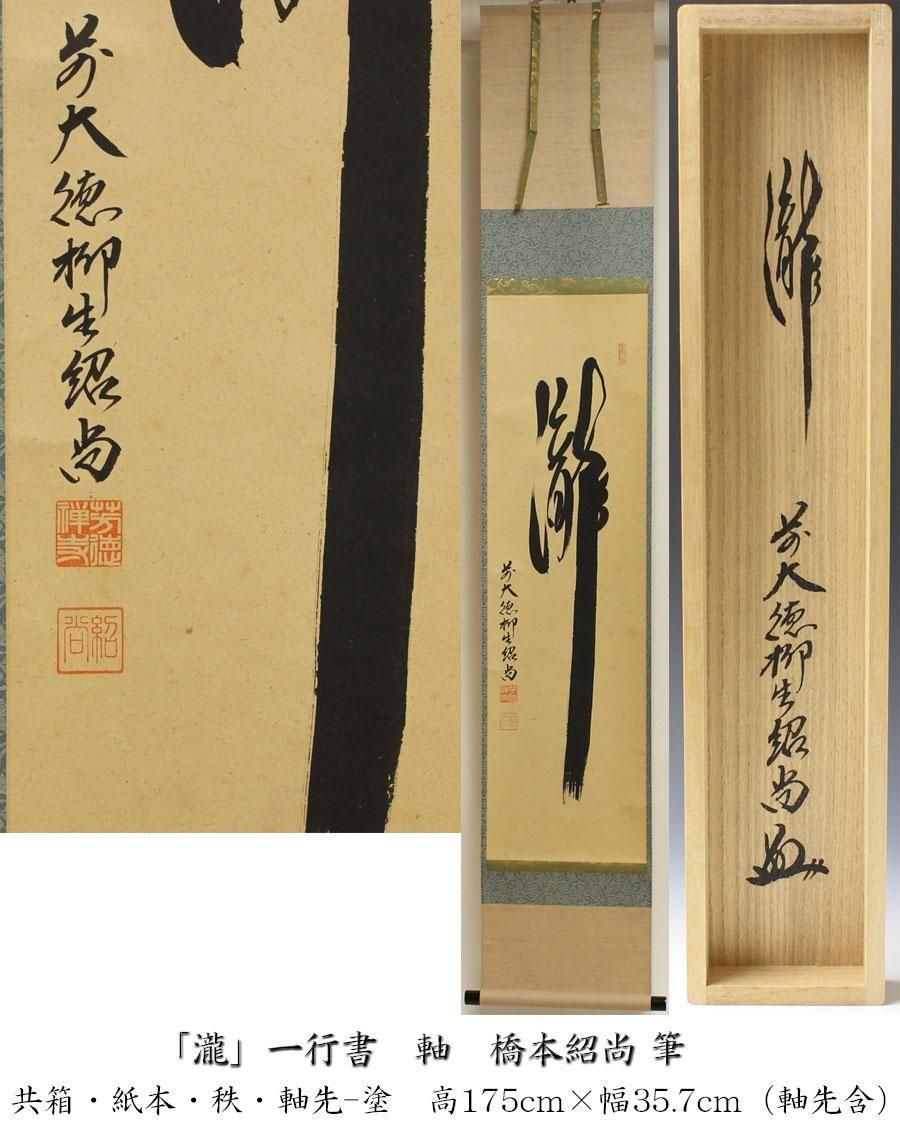 前大徳柳生紹尚
芳徳禅寺
紹尚
瀧
前大徳柳生紹尚
瀧
前大徳柳生紹尚
「瀧」一行書　軸　橋本紹尚 筆
共箱・紙本・秩・軸先-塗　高175cm×幅35.7cm（軸先含）